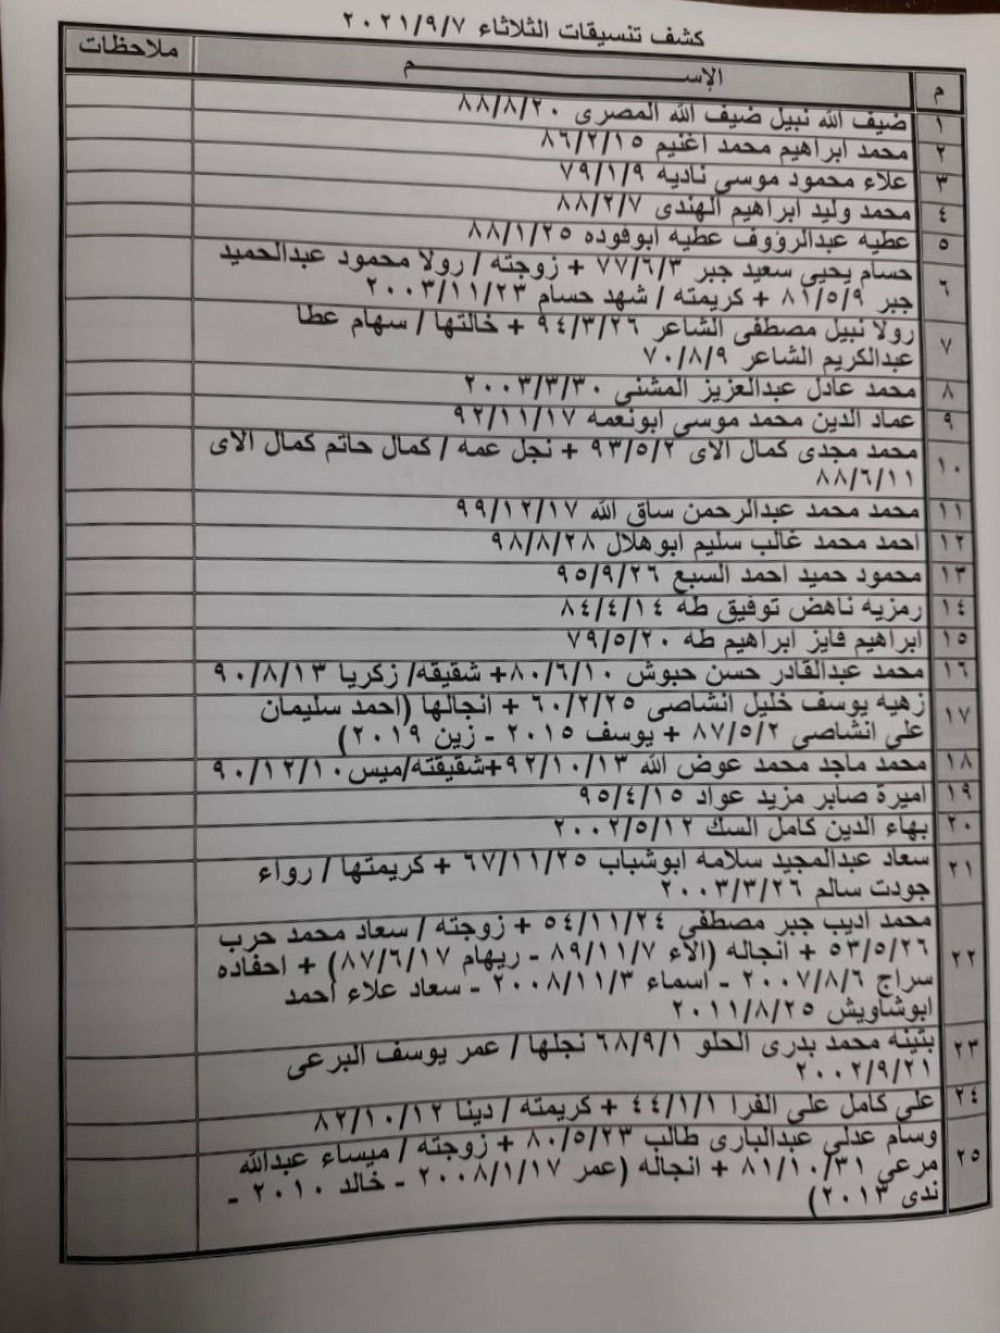 كشف تنسيقات الثلاثاء ٢٠٢١/٩/٧
م الإســـــــم ملاحظات
١ ضيف الله نبيل ضيف الله المصرى ٨٨/٨/٢٠
٢ محمد ابراهيم محمد اغنيم ٨٦/٢/١٥
٣ علاء محمود موسى ناديه ٧٩/١/٩
٤ محمد وليد ابراهيم الهندى ٨٨/٢/٧
٥ عطيه عبدالرؤوف عطيه ابوفوده ٨٨/١/٢٥
٦ حسام يحيى سعيد جبر ٧٧/٦/٣ + زوجته / رولا محمود عبدالحميد
جبر ٨١/٥/٩ + كريمته / شهد حسام ٢٠٠٣/١١/٢٣
٧ رولا نبيل مصطفى الشاعر ٩٤/٣/٢٦ + خالتها / سهام عطا
عبدالكريم الشاعر ٧٠/٨/٩
٨ محمد عادل عبدالعزيز المشنى ٢٠٠٣/٣/٣٠
٩ عماد الدين محمد موسى ابونعمه ٩٢/١١/١٧
١٠ محمد مجدى كمال الاى ٩٣/٥/٢ + نجل عمه / كمال حاتم كمال الاى
٨٨/٦/١١
١١ محمد محمد عبدالرحمن ساق الله ٩٩/١٢/١٧
١٢ احمد محمد غالب سليم ابوهلال ٩٨/٨/٢٨
١٣ محمود حميد احمد السبع ٩٥/٩/٢٦
١٤ رمزيه ناهض توفيق طه ٨٤/٤/١٤
١٥ ابراهيم فايز ابراهيم طه ٧٩/٥/٢٠
١٦ محمد عبدالقادر حسن حبوش ٨٠/٦/١٠+ شقيقه/ زكريا ٩٠/٨/١٣
١٧ زهيه يوسف خليل انشاصى ٦٠/٢/٢٥ + انجالها (احمد سليمان
على انشاصى ٨٧/٥/٢ + يوسف ٢٠١٥ - زين ٢٠١٩)
١٨ محمد ماجد محمد عوض الله ٩٢/١٠/١٣+شقيقته/ميس٩٠/١٢/١٠
١٩ اميرة صابر مزيد عواد ٩٥/٤/١٥
٢٠ بهاء الدين كامل السك ٢٠٠٢/٥/١٢
٢١ سعاد عبدالمجيد سلامه ابوشباب ٦٧/١١/٢٥ + كريمتها / رواء
جودت سالم ٢٠٠٣/٣/٢٦
٢٢ محمد اديب جبر مصطفى ٥٤/١١/٢٤ + زوجته / سعاد محمد حرب
٥٣/٥/٢٦ + انجاله (الاء ٨٩/١١/٧ - ريهام ٨٧/٦/١٧) + احفاده
سراج ٢٠٠٧/٨/٦ - اسماء ٢٠٠٨/١١/٣ - سعاد علاء احمد
ابوشاويش ٢٠١١/٨/٢٥
٢٣ بثينه محمد بدرى الحلو ٦٨/٩/١ نجلها / عمر يوسف البرعى
٢٠٠٢/٩/٢١
٢٤ على كامل على الفرا ٤٤/١/١ + كريمته / دينا ٨٢/١٠/١٢
٢٥ وسام عدلى عبدالبارى طالب ٨٠/٥/٢٣ + زوجته / ميساء عبدالله
مرعى ٨١/١٠/٣١ + انجاله (عمر ٢٠٠٨/١/١٧ - خالد ٢٠١٠ -
ندى ٢٠١٣)